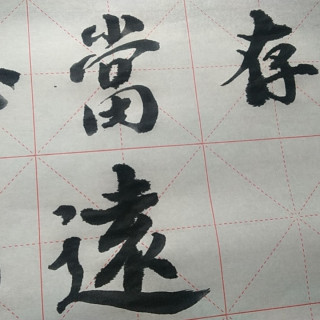 存
當遠